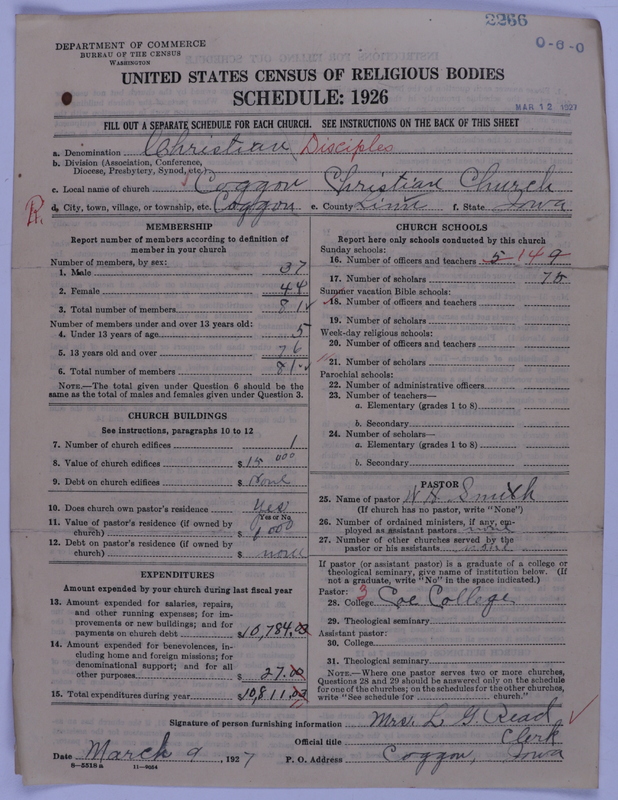 2266
0-6-0
DEPARTMENT OF COMMERCE
BUREAU OF THE CENSUS
WASHINGTON
UNITED STATES CENSUS OF RELIGIOUS BODIES
SCHEDULE: 1926
MAR 12 1927
FILL OUT A SEPARATE SCHEDULE FOR EACH CHURCH. SEE INSTRUCTIONS ON THE BACK OF THIS SHEET
a. Denomination Christian Disciples
b. Division (Association, Conference,
Diocese, Presbytery, Synod, etc.)
c. Local name of church Coggon Christian Church
R. d. City, town, village, or township, etc. Coggon e. County Linn f. State Iowa
MEMBERSHIP
Report number of members according to definition of
member in your church
Number of members, by sex:
1. Male 37
2. Female 44
3. Total number of members 81
Number of members under and over 13 years old:
4. Under 13 years of age 5
5. 13 years old and over 76
6. Total number of members 81
NOTE.—The total given under Question 6 should be the
same as the total of males and females given under Question 3.
CHURCH BUILDINGS
See instructions, paragraphs 10 to 12
7. Number of church edifices 1
8. Value of church edifices $ 15 000
9. Debt on church edifices $ None
10. Does church own pastor's residence Yes
(Yes or No)
11. Value of pastor's residence (if owned by
church) $ 1000
12. Debt on pastor's residence (if owned by
church) $ none
EXPENDITURES
Amount expended by your church during last fiscal year
13. Amount expended for salaries, repairs,
and other running expenses; for im-
provements or new buildings; and for
payments on church debt $10,784.03
14. Amount expended for benevolences, in-
cluding home and foreign missions; for
denominational support; and for all
other purposes $ 27.00
15. Total expenditures during year $10,811.03
CHURCH SCHOOLS
Report here only schools conducted by this church
Sunday schools:
16. Number of officers and teachers 5 14 9
17. Number of scholars 75
Summer vacation Bible schools:
18. Number of officers and teachers
19. Number of scholars
Week-day religious schools:
20. Number of officers and teachers
21. Number of scholars
Parochial schools:
22. Number of administrative officers
23. Number of teachers—
a. Elementary (grades 1 to 8)
b. Secondary
24. Number of scholars—
a. Elementary (grades 1 to 8)
b. Secondary
PASTOR
25. Name of pastor W. H. Smith
(If church has no pastor, write "None")
26. Number of ordained ministers, if any, em-
ployed as assistant pastors none
27. Number of other churches served by the
pastor or his assistants none
If pastor (or assistant pastor) is a graduate of a college or
theological seminary, give name of institution below. (If
not a graduate, write "No" in the space indicated.)
Pastor: 3
28. College Coe College
29. Theological seminary
Assistant pastor:
30. College
31. Theological seminary
NOTE.—Where one pastor serves two or more churches,
Questions 28 and 29 should be answered only on the schedule
for one of the churches; on the schedules for the other churches,
write "See schedule for church."
Signature of person furnishing information Mrs. L. G. Read
Official title Clerk
Date March 9, 1927 P. O. Address Coggon, Iowa
8-5518a 11-9054